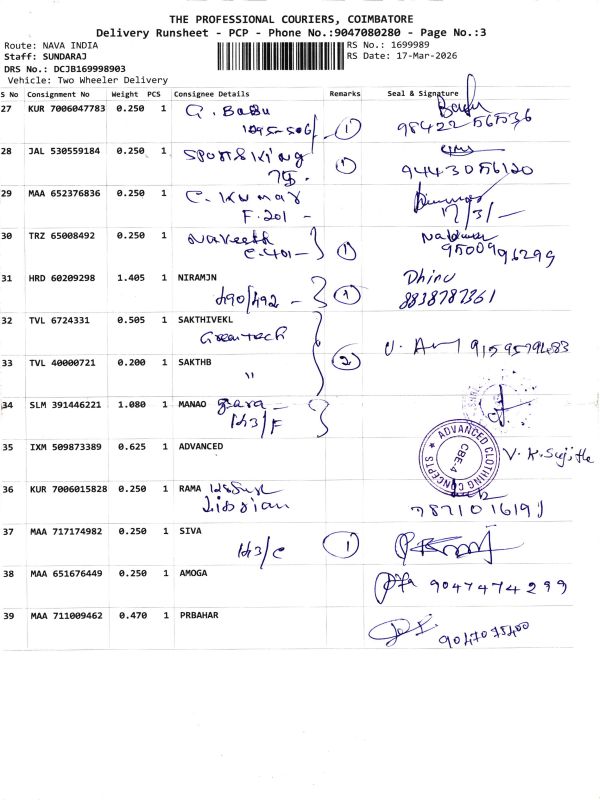 THE PROFESSIONAL COURIERS, COIMBATORE
Delivery Runsheet - PCP - Phone No.:9047080280 - Page No.:3
Route: NAVA INDIA
Staff: SUNDARAJ
DRS No.: DCJB169998903
Vehicle: Two Wheeler Delivery
RS No.: 1699989
RS Date: 17-Mar-2026
S No Consignment No Weight PCS Consignee Details Remarks Seal & Signature
27 KUR 7006047783 0.250 1 G. Babu 1 Babu
98422 56536
28 JAL 530559184 0.250 1 Sports King 1
75. 94430 56120
29 MAA 652376836 0.250 1 C. Kumar
F.201 - 17/3/-
30 TRZ 65008492 0.250 1 Naveeth 1
C.401- 9500996299
31 HRD 60209298 1.405 1 NIRAMJN Dhinu
490/492 - 1 8838787361
32 TVL 6724331 0.505 1 SAKTHIVEKL
Greentech 2
33 TVL 40000721 0.200 1 SAKTHB
"
34 SLM 391446221 1.080 1 MANAO
143/F
35 IXM 509873389 0.625 1 ADVANCED V.K.Sujith
ADVANCED CLOTHING CONCEPTS
CBE-4
36 KUR 7006015828 0.250 1 RAMA
37 MAA 717174982 0.250 1 SIVA
143/C 1
38 MAA 651676449 0.250 1 AMOGA 9047474299
39 MAA 711009462 0.470 1 PRBAHAR